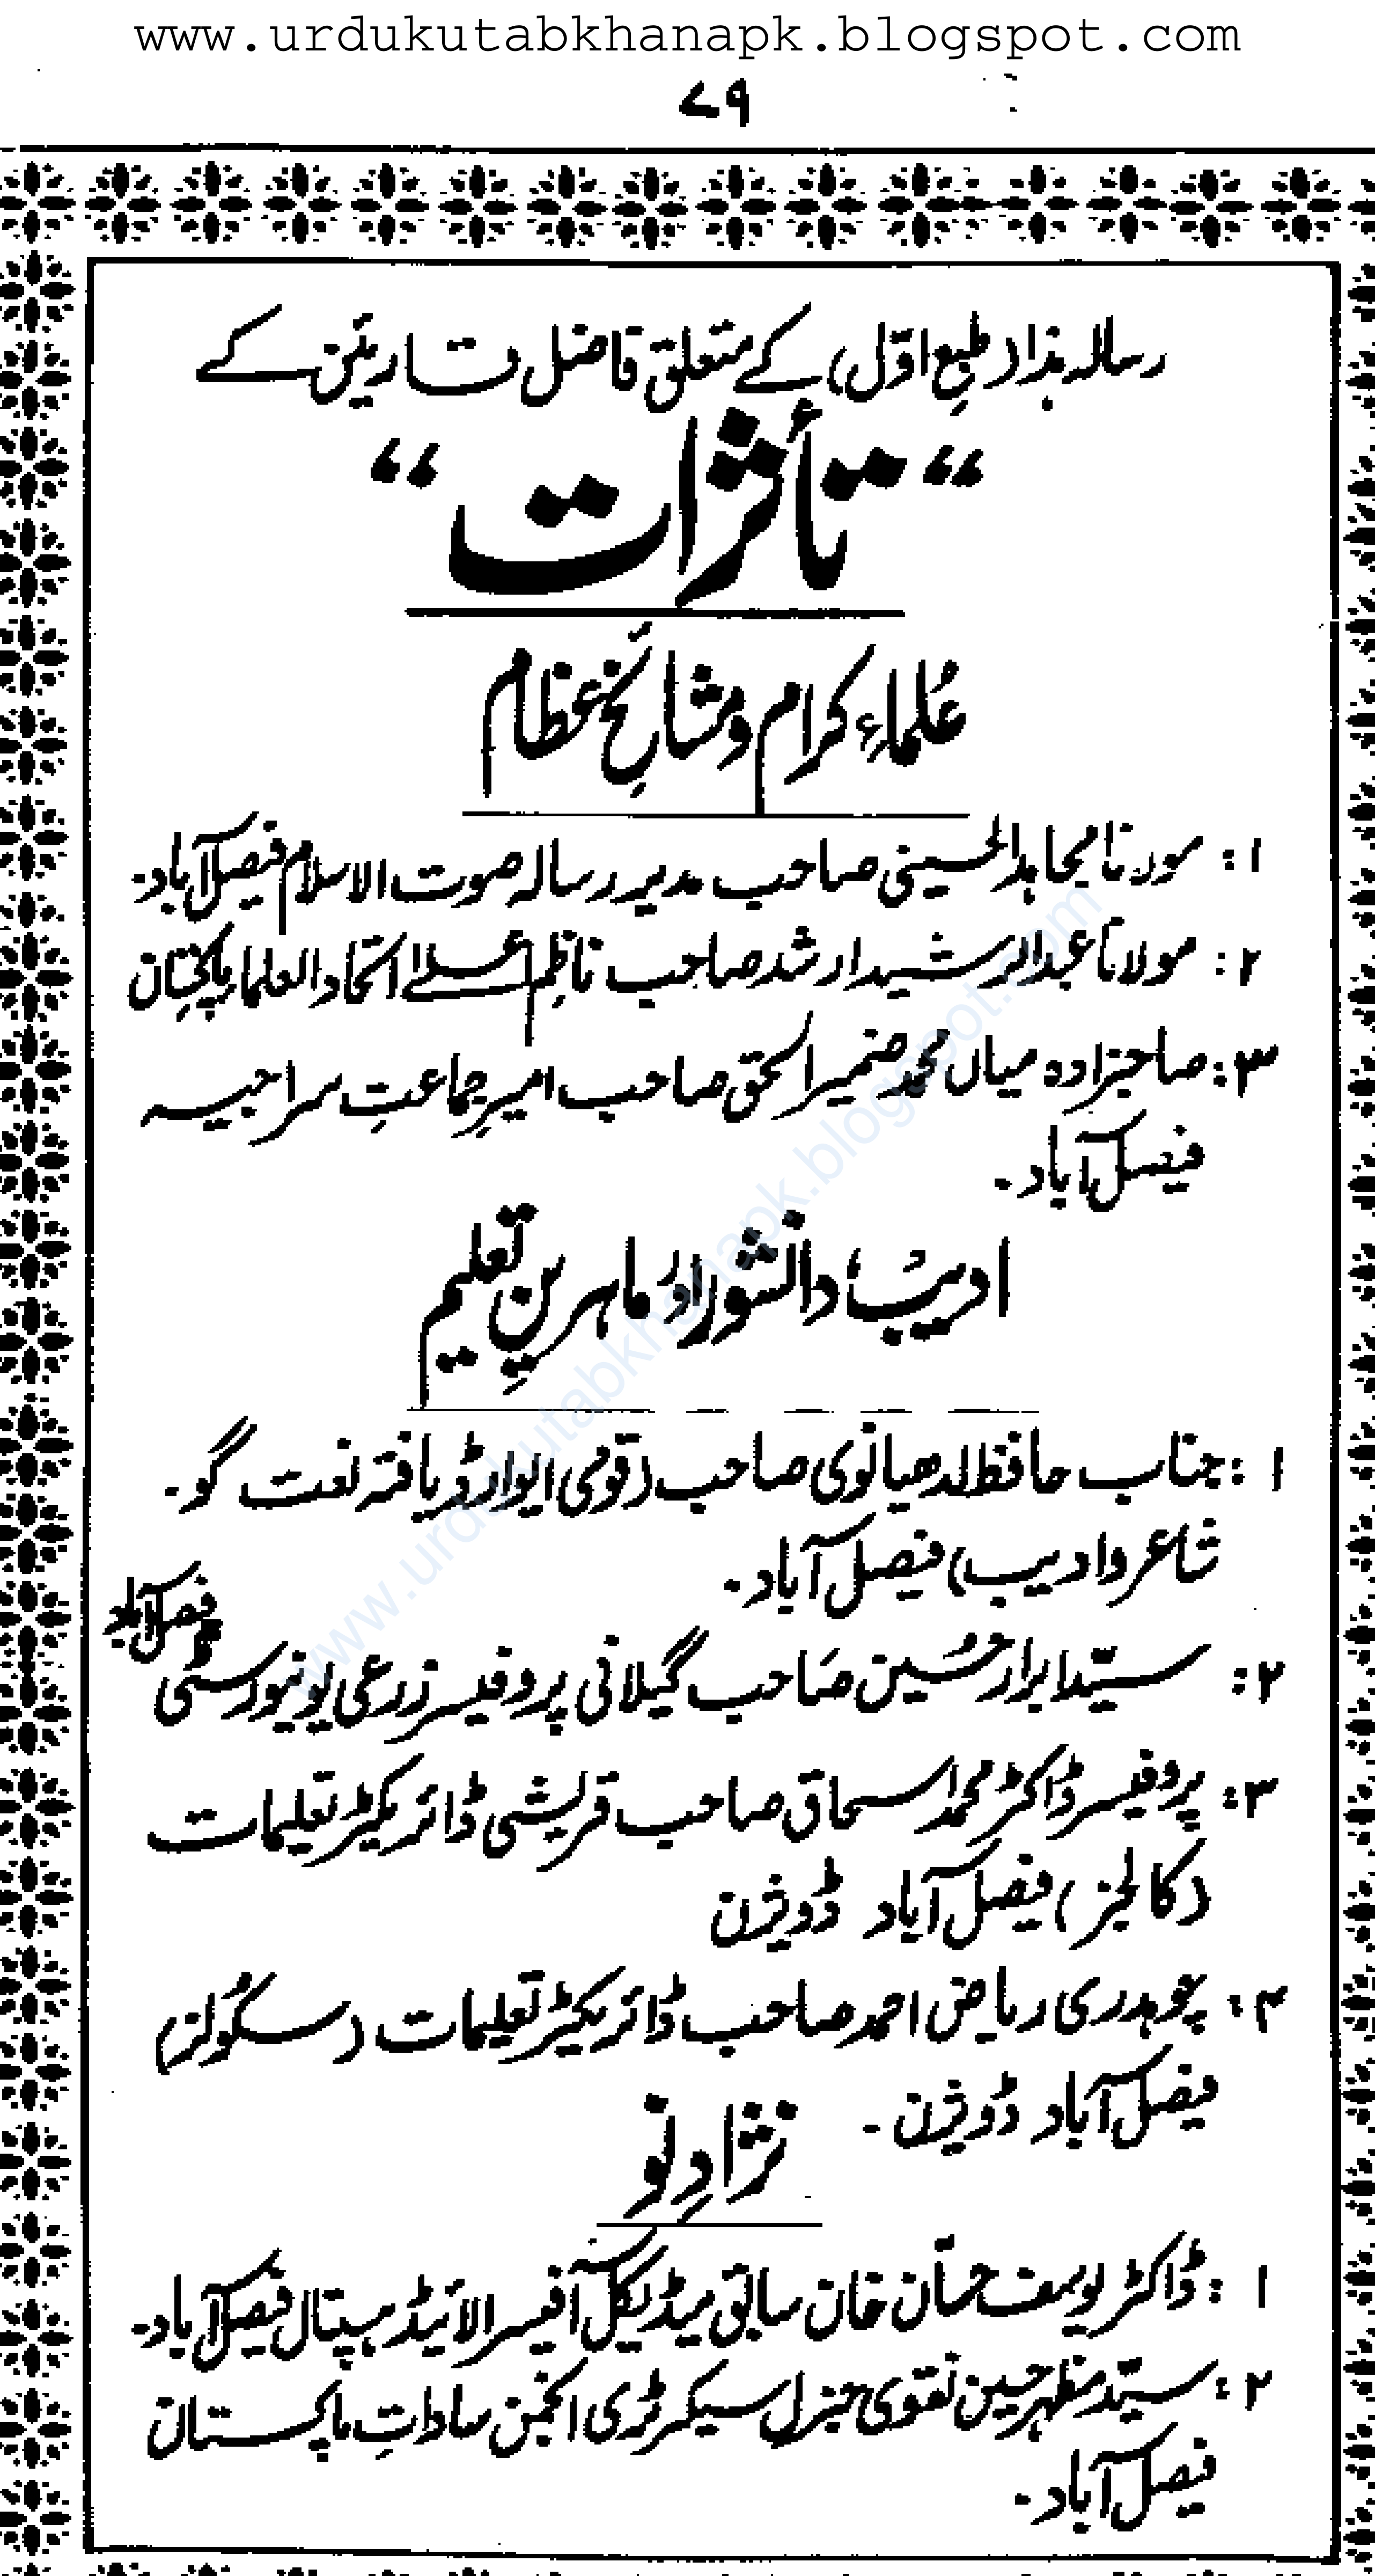 www.urdukutabkhanapk.blogspot.com
۷۹
رسالہ ہذا (طبعِ اوّل) کے متعلق فاضل قارئین کے
“تأثرات“
عُلماءِ کرام و مشائخِ عظام
۱: مولانا مجاہد الحسینی صاحب مدیر رسالہ صوت الاسلام فیصل آباد۔
۲: مولانا عبدالرشید ارشد صاحب ناظمِ اعلےٰ اتحاد العلماء پاکستان
۳: صاحبزادہ میاں محمد ضمیر الحق صاحب امیرِ جماعتِ سراجیہ
فیصل آباد۔
ادیب، دانشور اور ماہرینِ تعلیم
۱: جناب حافظ لدھیانوی صاحب (قومی ایوارڈ یافتہ نعت گو۔
شاعر و ادیب) فیصل آباد۔
۲: سیّد ابرار حُسین صاحب گیلانی پروفیسر زرعی یونیورسٹی فیصل آباد
۳: پروفیسر ڈاکٹر محمد اسحاق صاحب قریشی ڈائریکٹر تعلیمات
(کالجز) فیصل آباد ڈویژن
۴: چوہدری ریاض احمد صاحب ڈائریکٹر تعلیمات (سکولز)
فیصل آباد ڈویژن۔
نژادِ نو
۱: ڈاکٹر یوسف حسّان خان سابق میڈیکل آفیسر الائیڈ ہسپتال فیصل آباد۔
۲: سیّد مظہر حسین نقوی جنرل سیکرٹری انجمن ساداتِ پاکستان
فیصل آباد۔
www.urdukutabkhanapk.blogspot.com